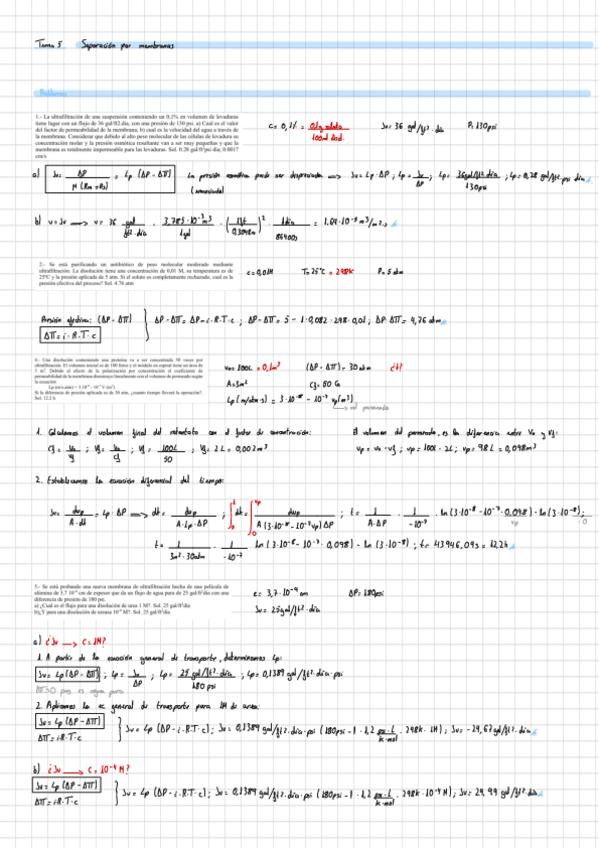 Tema 5 Separación por membranas
Problemas
1.- La ultrafiltración de una suspensión conteniendo un 0,1% en volumen de levaduras
tiene lugar con un flujo de 36 gal/ft2.día, con una presión de 130 psi. a) Cual es el valor
del factor de permeabilidad de la membrana, b) cual es la velocidad del agua a través de
la membrana. Considerar que debido al alto peso molecular de las células de levadura su
concentración molar y la presión osmótica resultante van a ser muy pequeñas y que la
membrana es totalmente impermeable para las levaduras. Sol. 0.28 gal/ft²psi día; 0.0017
cm/s
c = 0,1% = 0,1g soluto / 100ml disol. Jv = 36 gal/ft²·día P: 130psi
a) Jv = ΔP / μ (Rm + Rs) = Lp (ΔP - ΔΠ) La presión osmótica puede ser despreciada ⟹ Jv = Lp · ΔP ; Lp = Jv / ΔP ; Lp = 36gal/ft²·día / 130psi ; Lp = 0,28 gal/ft²·psi día
(enunciado)
b) v = Jv ⟶ v = 36 gal / ft²·día · 3,785·10⁻³m³ / 1gal · (1ft / 0,3048m)² · 1día / 86400s = 1,69·10⁻⁵ m³/m²·s
2.- Se está purificando un antibiótico de peso molecular moderado mediante
ultrafiltración. La disolución tiene una concentración de 0,01 M, su temperatura es de
25ºC y la presión aplicada de 5 atm. Si el soluto es completamente rechazado, cual es la
presión efectiva del proceso? Sol. 4.76 atm
c = 0,01M T = 25°C = 298K P = 5 atm
Presión efectiva: (ΔP - ΔΠ) } ΔP - ΔΠ = ΔP - i·R·T·c ; ΔP - ΔΠ = 5 - 1·0,082·298·0,01 ; ΔP - ΔΠ = 4,76 atm
ΔΠ = i·R·T·c
4.- Una disolución conteniendo una proteína va a ser concentrada 50 veces por
ultrafiltración. El volumen inicial es de 100 litros y el módulo en espiral tiene un área de
3 m². Debido al efecto de la polarización por concentración el coeficiente de
permeabilidad de la membrana disminuye linealmente con el volumen de permeado según
la ecuación:
Si la diferencia de presión aplicada es de 30 atm, ¿cuanto tiempo llevará la operación?
Sol. 12.2 h
v₀ = 100L = 0,1m³ (ΔP - ΔΠ) = 30 atm ¿t?
A = 3m² Cf = 50 C₀
Lp (m/atm·s) = 3·10⁻⁸ - 10⁻⁷ vp(m³)
vol permeado
1. Calculamos el volumen final del retentato con el factor de concentración: El volumen del permeado, es la diferencia entre V₀ y Vf:
Cf = V₀ / Vf ; Vf = V₀ / Cf ; Vf = 100L / 50 ; Vf = 2L = 0,002m³ vp = v₀ - vf ; vp = 100L - 2L ; vp = 98L = 0,098m³
2. Establecemos la ecuación diferencial del tiempo:
Jv = dvp / A·dt = Lp·ΔP ⟹ dt = dvp / A·Lp·ΔP ; ∫₀ᵗ dt = ∫₀ᵛᵖ dvp / A(3·10⁻⁸ - 10⁻⁷vp)ΔP ; t = 1 / A·ΔP · 1 / -10⁻⁷ · ln(3·10⁻⁸ - 10⁻⁷·0,098) - ln(3·10⁻⁸) ;
vp 0
t = 1 / 3m²·30atm · 1 / -10⁻⁷ ln(3·10⁻⁸ - 10⁻⁷·0,098) - ln(3·10⁻⁸) ; t = 43946,09s = 12,2h
5.- Se está probando una nueva membrana de ultrafiltración hecha de una película de
alúmina de 3,7 10⁻⁴ cm de espesor que da un flujo de agua para de 25 gal/ft²día con una
diferencia de presión de 180 psi.
a) ¿Cual es el flujo para una disolución de urea 1 M?. Sol. 25 gal/ft²día
b)¿Y para una disolución de ureasa 10⁻⁴ M?. Sol. 25 gal/ft²día
e = 3,7·10⁻⁴ cm ΔP = 180psi
Jv = 25gal/ft²·día
a) ¿Jv ⟶ C = 1M?
1. A partir de la ecuación general de transporte, determinamos Lp:
Jv = Lp (ΔP - ΔΠ) ; Lp = Jv / ΔP ; Lp = 25 gal/ft²·día / 180 psi ; Lp = 0,1389 gal/ft²·día·psi
ΔΠ=0 pues es agua pura
2. Aplicamos la ec general de transporte para 1M de urea:
Jv = Lp (ΔP - ΔΠ)
ΔΠ = i·R·T·c } Jv = Lp (ΔP - i·R·T·c) ; Jv = 0,1389 gal/ft²·día·psi (180psi - 1·1,2 psi·L / K·mol · 298K·1M) ; Jv = -24,67 gal/ft²·día
b) ¿Jv ⟶ C = 10⁻⁴ M?
Jv = Lp (ΔP - ΔΠ)
ΔΠ = i·R·T·c } Jv = Lp (ΔP - i·R·T·c) ; Jv = 0,1389 gal/ft²·día·psi (180psi - 1·1,2 psi·L / K·mol · 298K·10⁻⁴M) ; Jv = 24,99 gal/ft²·día